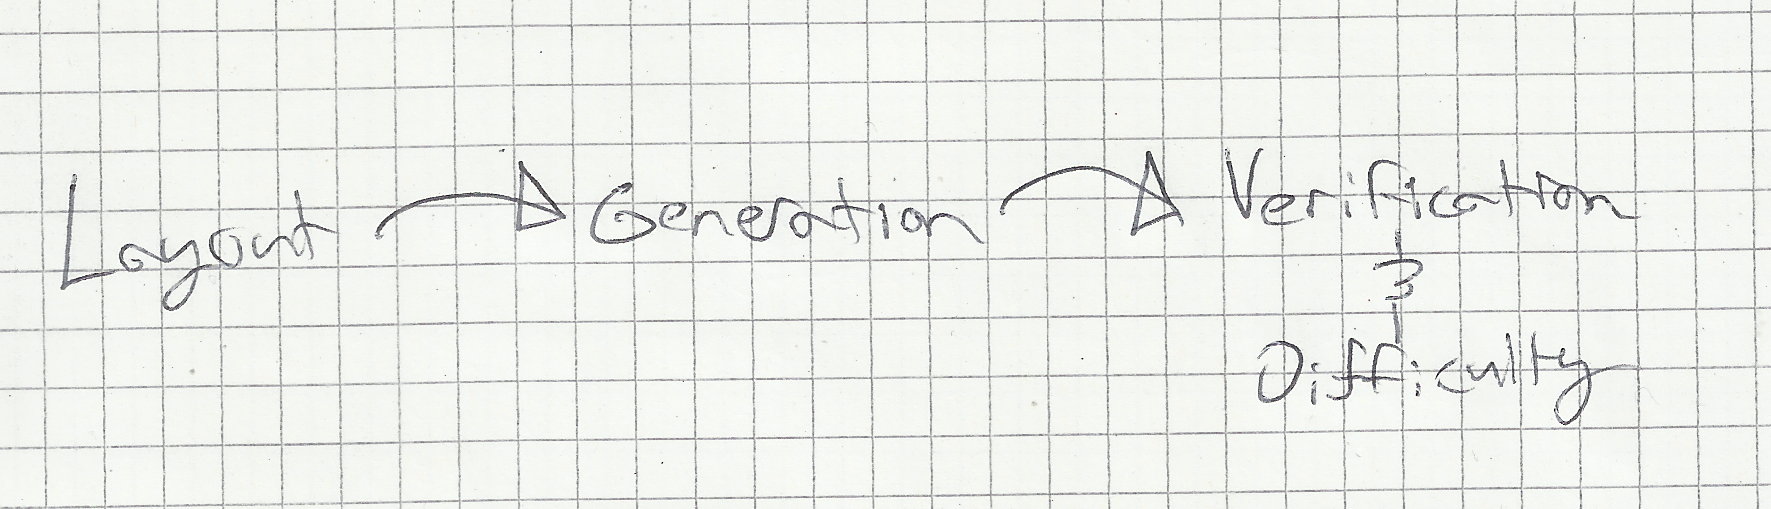 Layout → Generation → Verification
&
Difficulty